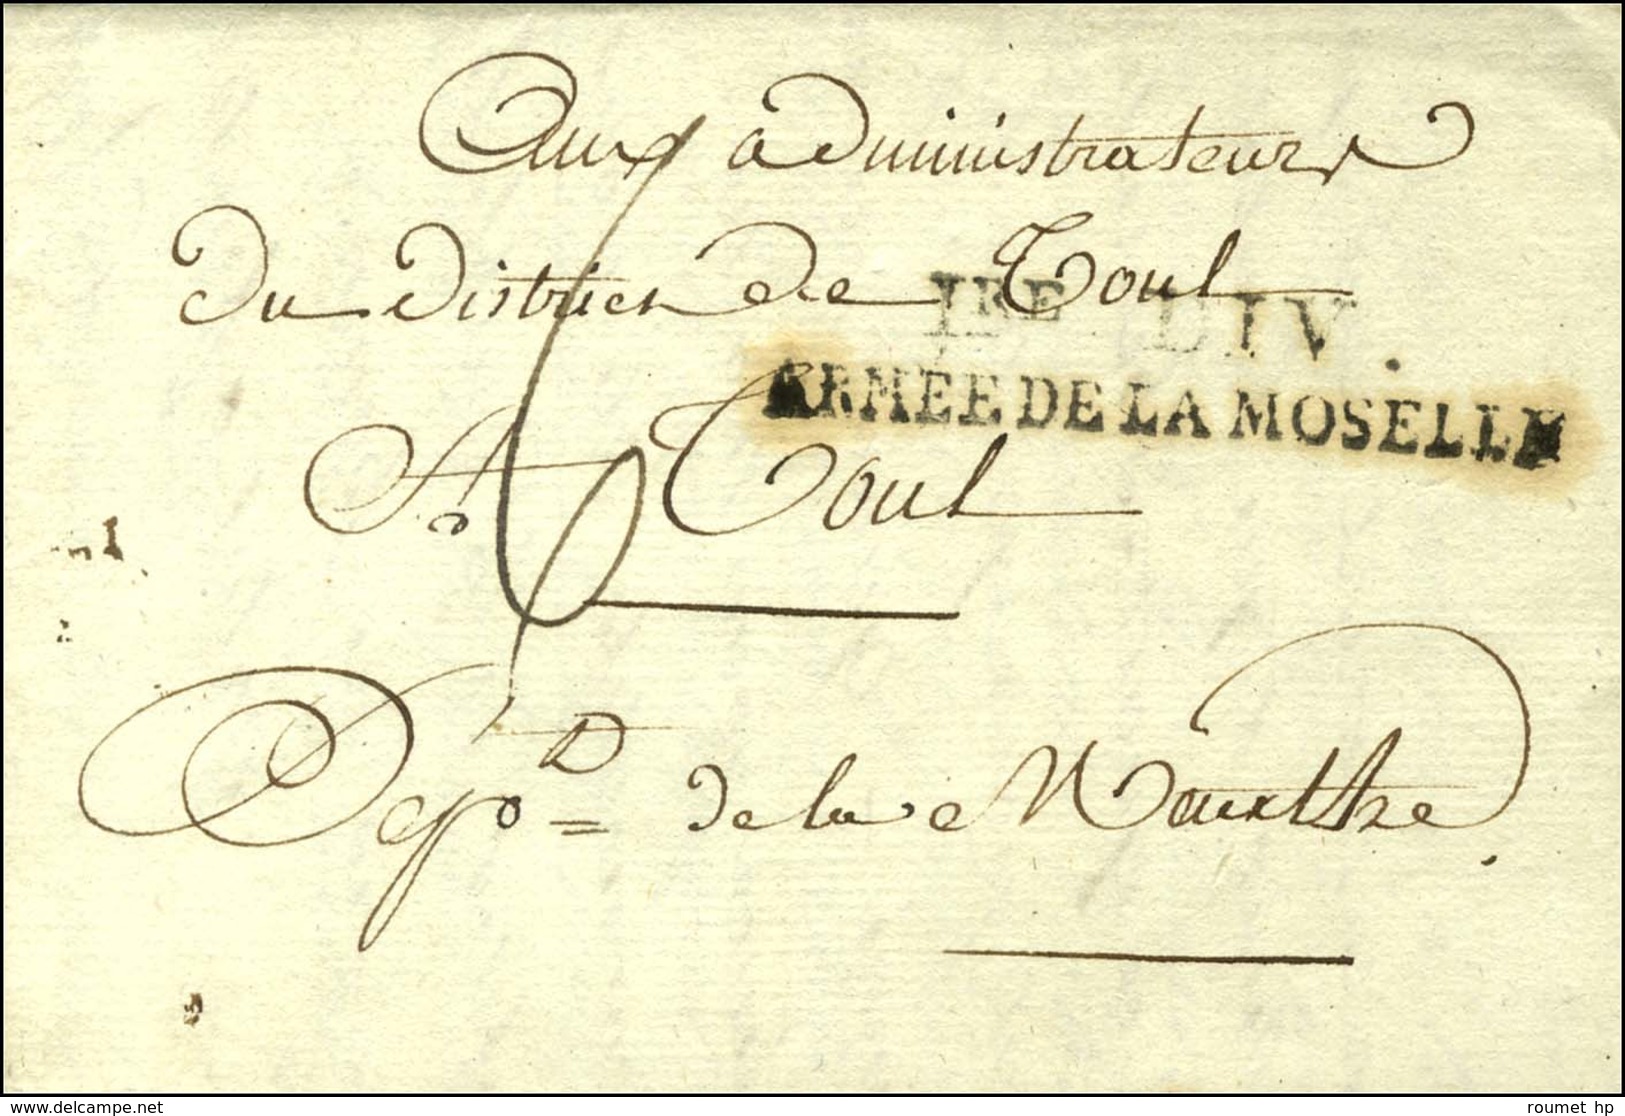 Aux administrateurs
du district de Toul
1RE DIV.
ARMÉE DE LA MOSELLE
A Toul
6
Depo.=
de la Meurthe
delcampe.net
roumet hp